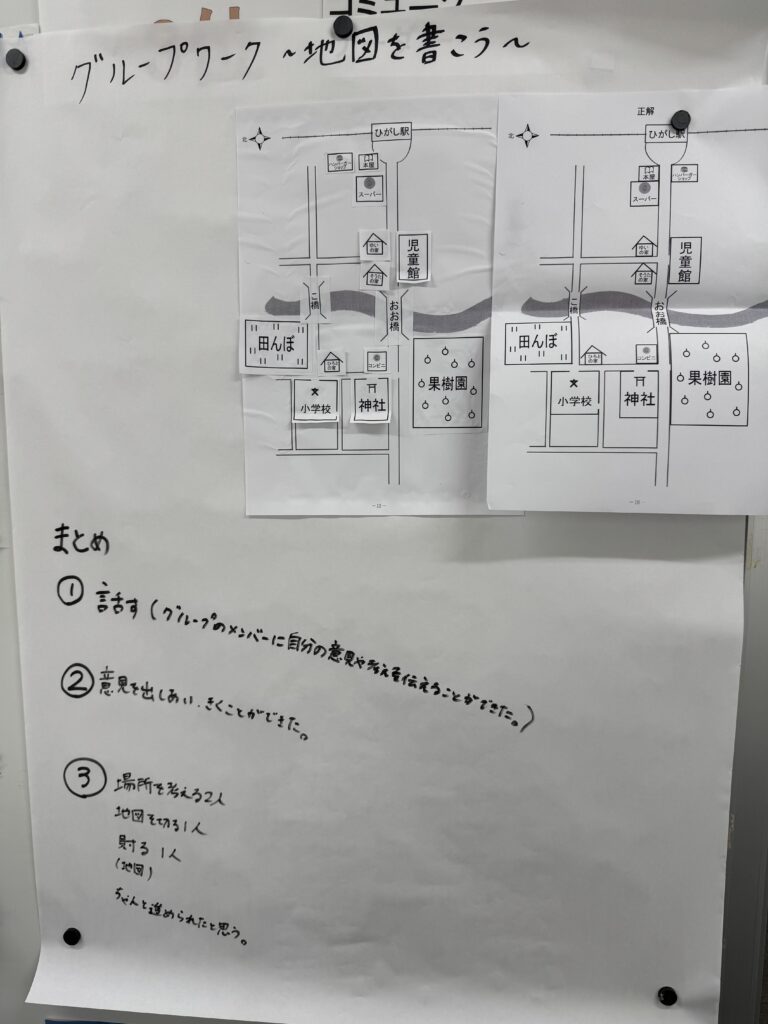 コミュニケ
グループワーク ~地図を書こう~
北
ひがし駅
ハンバーガーショップ
本屋
スーパー
ゆいの家
児童館
そうたの家
こ橋
おお橋
田んぼ
ひろとの家
コンビニ
果樹園
小学校
神社
正解
北
ひがし駅
本屋
ハンバーガーショップ
スーパー
ゆいの家
児童館
そうたの家
こ橋
おお橋
田んぼ
ひろとの家
コンビニ
果樹園
小学校
神社
まとめ
① 話す(グループのメンバーに自分の意見や考えを伝えることができた。)
② 意見を出しあい、きくことができた。
③ 場所を考える2人
地図を切る1人
貼る 1人
(地図)
ちゃんと進められたと思う。